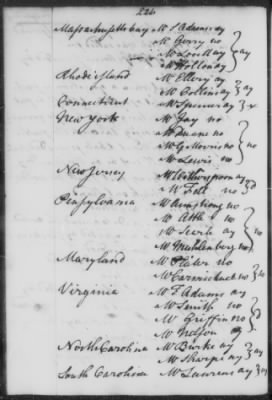 224
Massachusetts bay Mr S Adams ay
Mr Gerry no
Mr Lovell ay } ay
Mr Holton ay
Rhode island Mr Ellery ay
Mr Collins ay } ay
Connecticut Mr Spencer ay } x
New York Mr Jay no
Mr Duane no
Mr G Morris no } no
Mr Lewis no
New Jersey Mr Witherspoon ay
Mr Fell no } d
Pensylvania Mr Armstrong no
Mr Atlee no
Mr Searle ay
Mr Muhlenberg no
Maryland Mr Plater no
Mr Carmichael no } no
Virginia Mr T Adams ay
Mr Smith no
Mr Griffin no } d
Mr Nelson ay
North Carolina Mr Burke ay
Mr Sharpe ay } ay
South Carolina Mr Laurens ay } ay